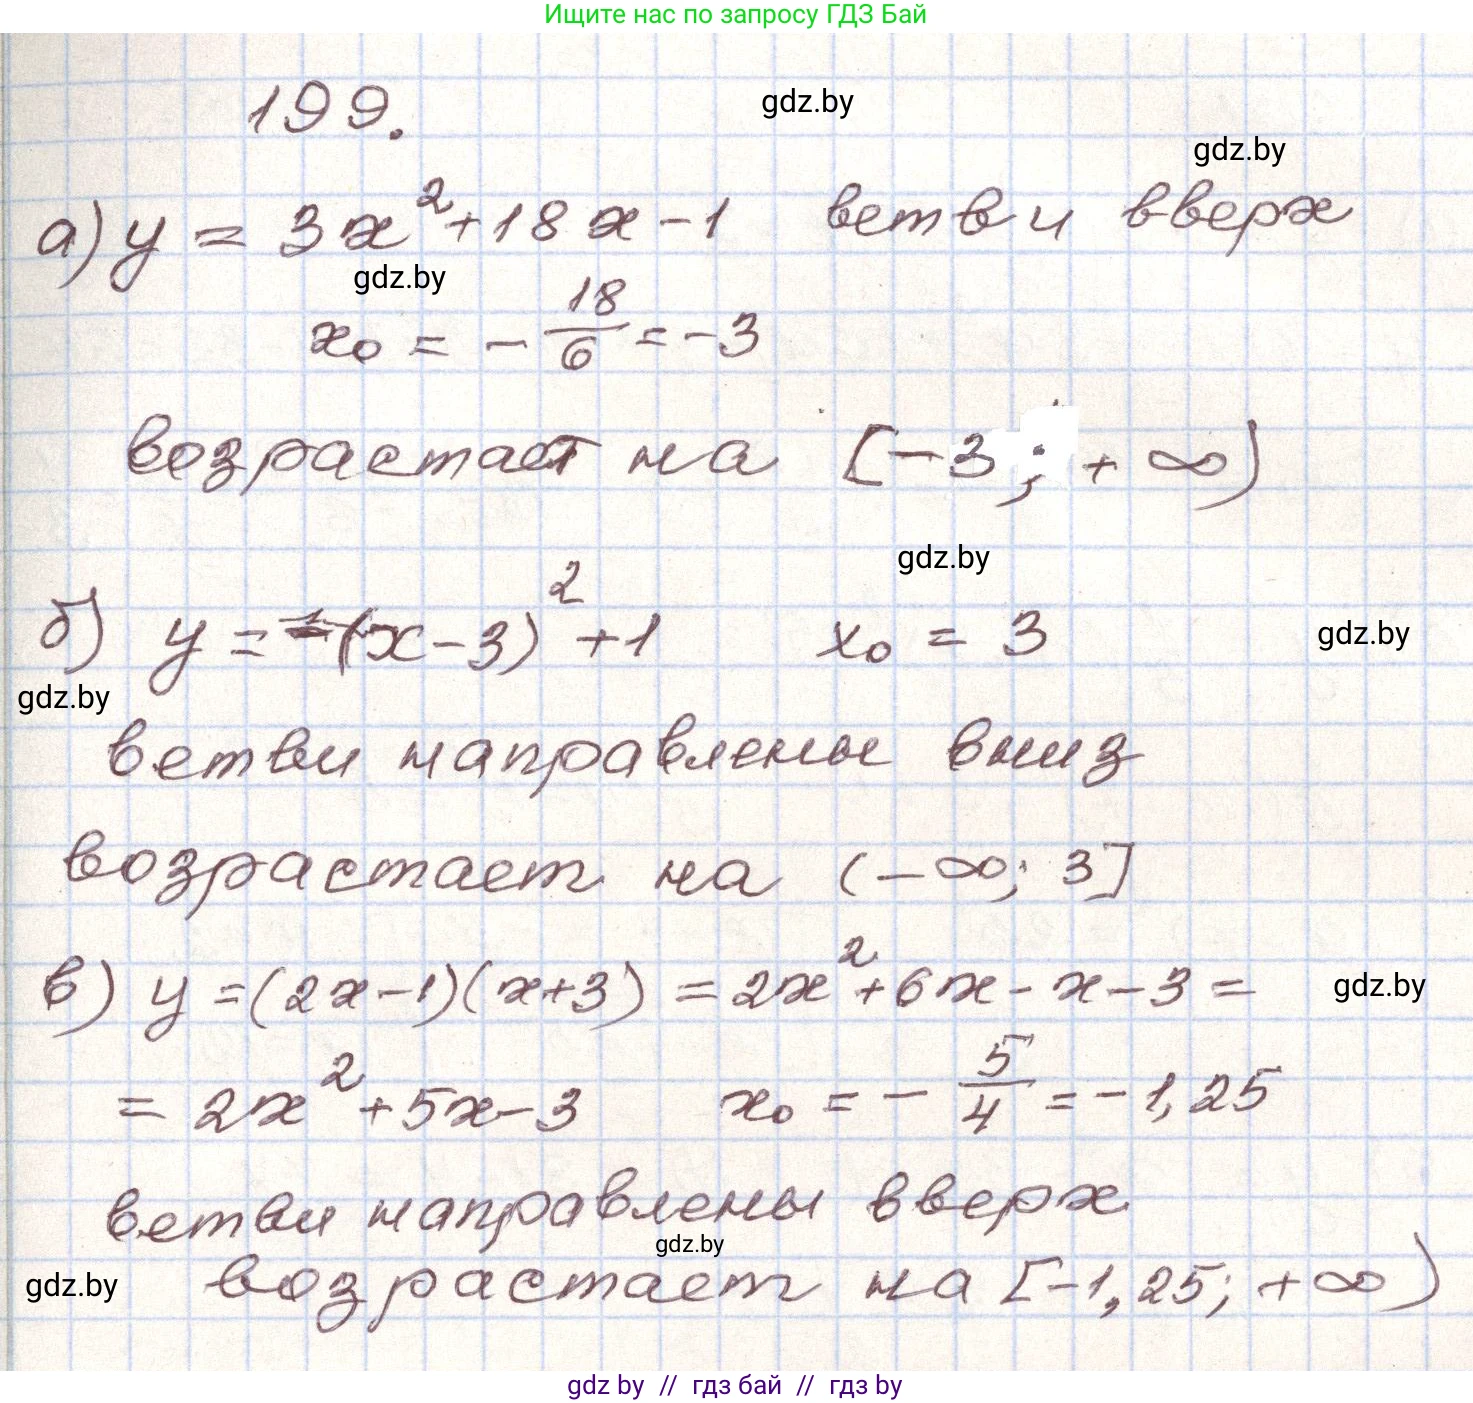 Ищите нас по запросу ГДЗ Бай
199.
gdz.by
gdz.by
а) y = 3x²+18x-1 ветви вверх
gdz.by
x₀ = -18/6 = -3
возрастает на [-3; +∞)
gdz.by
б) y = -(x-3)²+1 x₀ = 3
gdz.by
gdz.by
ветви направлены вниз
возрастает на (-∞; 3]
в) y = (2x-1)(x+3) = 2x²+6x-x-3 =
gdz.by
= 2x²+5x-3 x₀ = -5/4 = -1,25
ветви направлены вверх
gdz.by
gdz.by
возрастает на [-1,25; +∞)
gdz by // гдз бай // гдз by